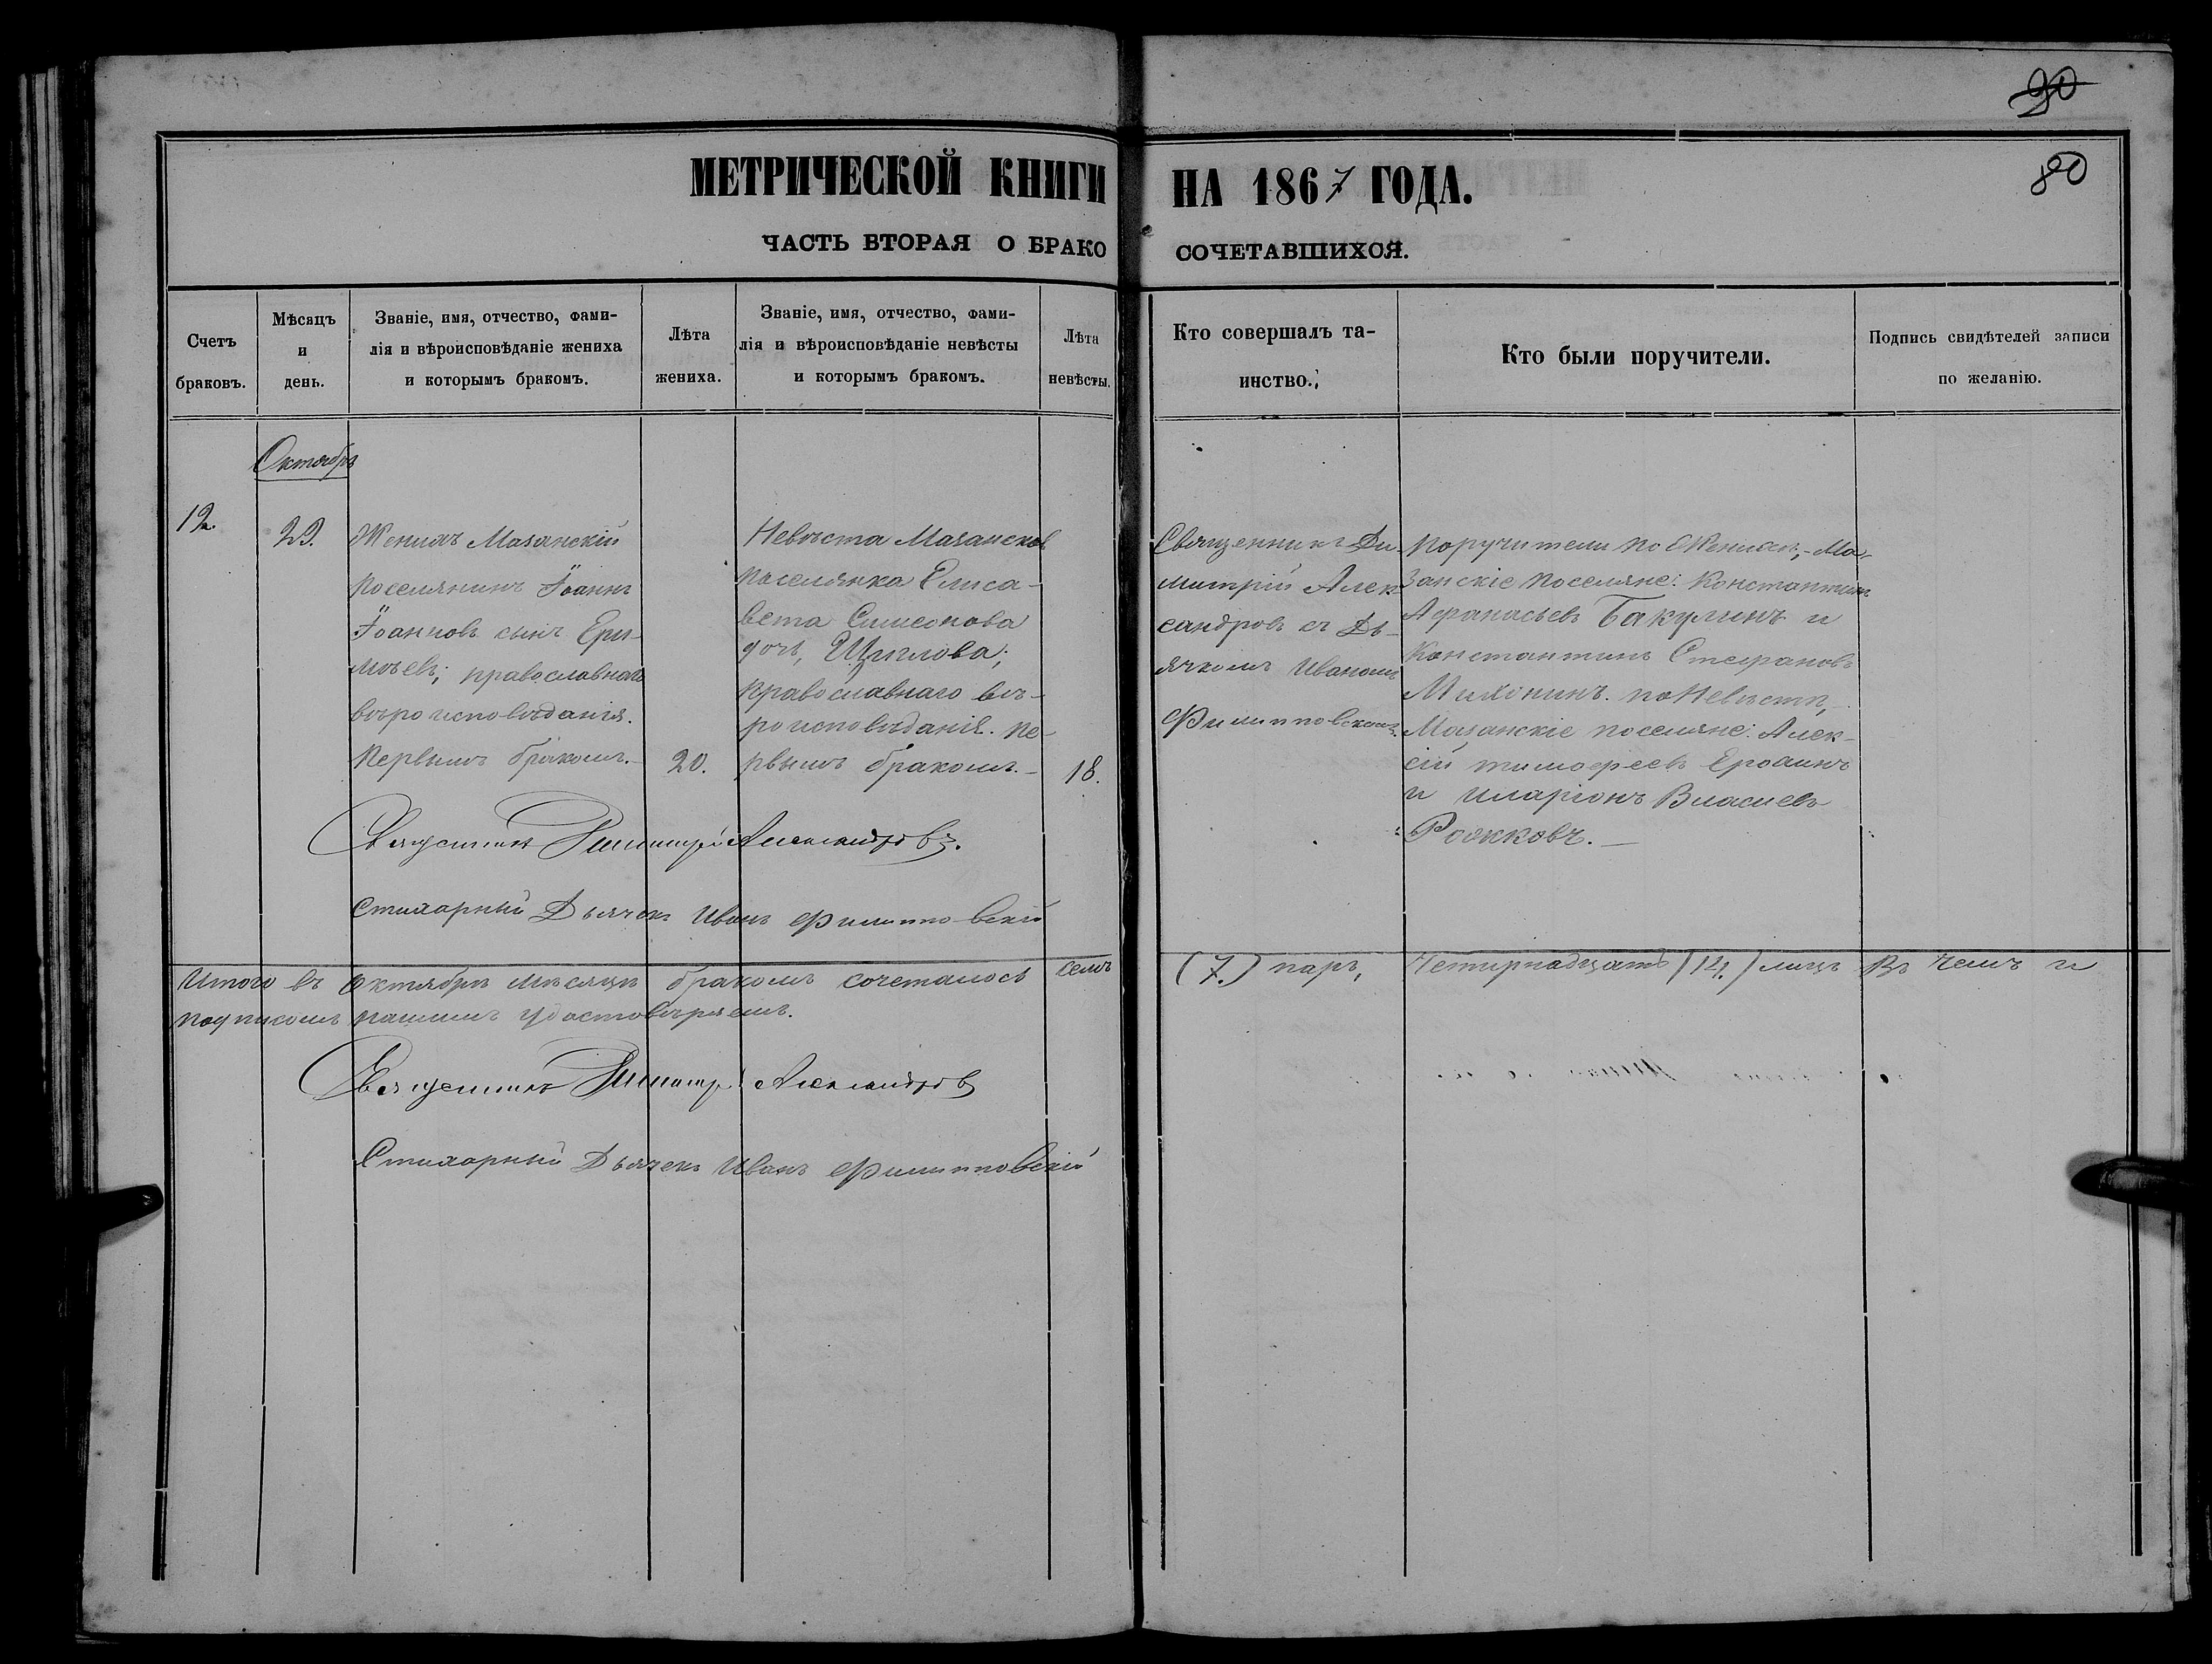 90
80
МЕТРИЧЕСКОЙ КНИГИ НА 1867 ГОДА.
ЧАСТЬ ВТОРАЯ О БРАКОСОЧЕТАВШИХСЯ.
Счетъ
браковъ.
Мѣсяцъ
и
день.
Званіе, имя, отчество, фами-
лія и вѣроисповѣданіе жениха
и которымъ бракомъ.
Лѣта
жениха.
Званіе, имя, отчество, фами-
лія и вѣроисповѣданіе невѣсты
и которымъ бракомъ.
Лѣта
невѣсты.
Кто совершалъ та-
инство.
Кто были поручители.
Подпись свидѣтелей записи
по желанію.
Октябрь
12.
Женихъ Мазанскій
поселянинъ Іоаннъ
Іоанновъ сынъ Ери-
мѣевъ; православнаго
вѣроисповѣданія.
Первымъ бракомъ.
20.
Невѣста Мазанская
поселянка Елиса-
вета Симеонова
дочь, Щиглова;
православнаго вѣ-
роисповѣданія. пе-
рвымъ бракомъ.
18.
Священникъ Ди-
митрій Алек-
сандровъ съ Дь-
ячкомъ Иваномъ
Филипповскимъ.
Поручители по Женихѣ; Ма-
занскіе поселяне: Константинъ
Афанасьевъ Бакулинъ и
Константинъ Стефановъ
Михонинъ. по Невѣстѣ,
Мазанскіе поселяне: Алек-
сій тимофеевъ Ерохинъ
и Иларіонъ Власіевъ
Рожковъ.
Священникъ Димитрій Александровъ.
Стихарный Дьячокъ Иванъ Филипповскій
Итого въ Октябрѣ мѣсяцѣ бракомъ сочеталось семь (7.) паръ, Четырнадцать (14.) лицъ Въ чемъ и
подписомъ нашимъ удостовѣряемъ.
Священникъ Димитрій Александровъ
Стихарный Дьячекъ Иванъ Филипповскій